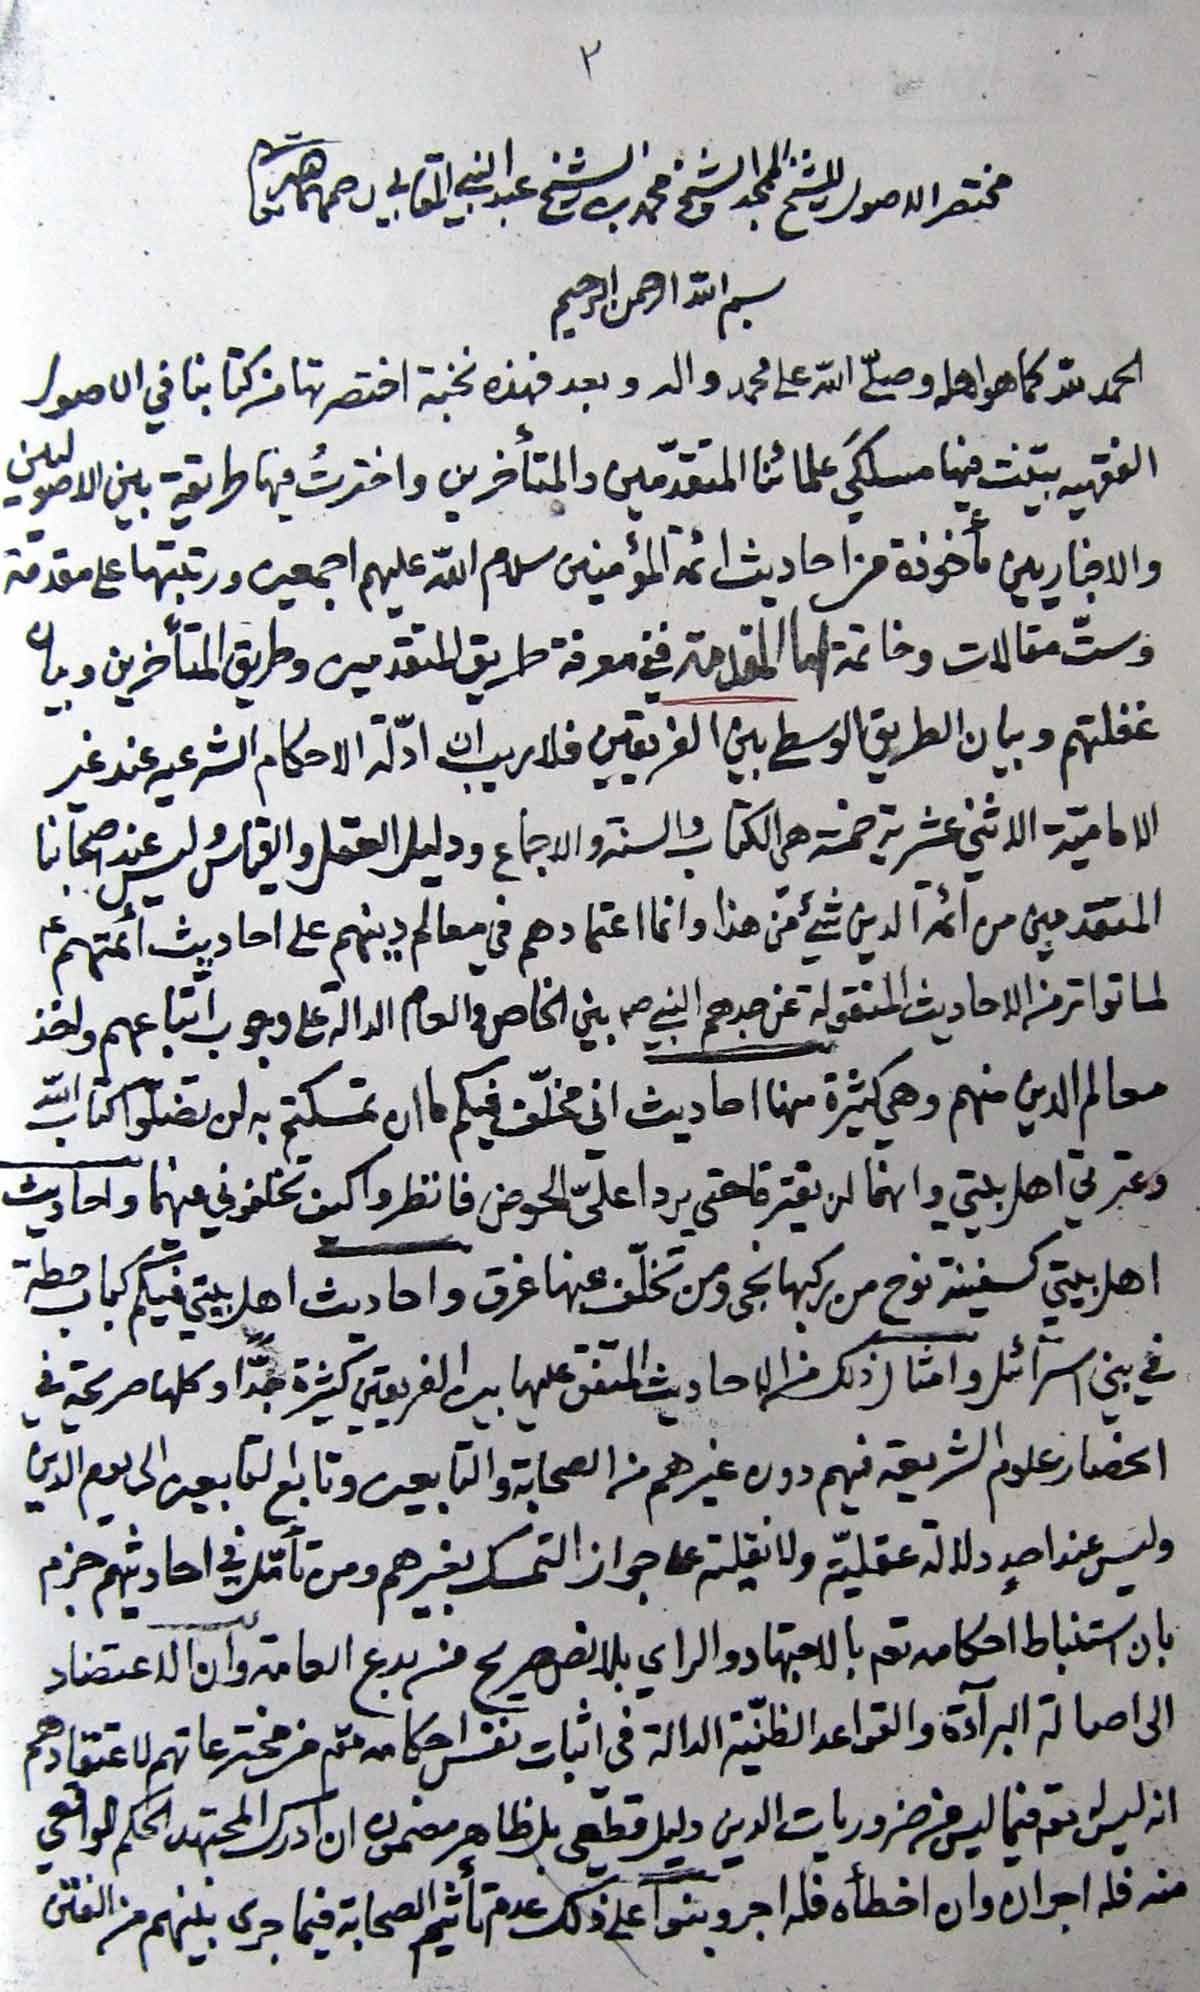 ٢
مختصر الاصول للشيخ الامجد الشيخ محمد بن الشيخ عبد النبي المقابي رحمهما الله تعا
بسم الله الرحمن الرحيم
الحمد لله كما هو اهله وصلّى الله على محمد واله وبعد فهذه نخبة اختصرتها من كتابنا في الاصول
الفقهيه بيّنت فيها مسلكَي علمائنا المتقدّمين والمتأخرين واخترتُ فيها طريقة بين الاصوليين
والاخباريين مأخوذة من احاديث ائمة المؤمنين سلام الله عليهم اجمعين ورتبتها على مقدمة
وستّ مقالات وخاتمة اما المقدمة ففي معرفة طريق المتقدمين وطريق المتأخرين وبيان
غفلتهم وبيان الطريق الوسط بين الفريقين فلا ريب ان ادّلة الاحكام الشرعيه عند غير
الاماميّة الاثني عشرية خمسة هي الكتاب والسنة والاجماع ودليل العقل والقياس وليس عند اصحابنا
المتقدمين من ائمة الدين شئ من هذا وانما اعتمادهم في معالم دينهم على احاديث أئمتهم ع
لما تواتر من الاحاديث المنقولة عن جدهم النبي ص بين الخاص والعام الدالة على وجوب اتّباعهم واخذ
معالم الدين منهم وهي كثيرة منها احاديث اني مخلّف فيكم ما ان تمسكتم به لن تضلّوا كتاب الله
وعترتي اهل بيتي وانهما لن يفترقا حتى يردا عليّ الحوض فانظروا كيف تخلفوني فيهما واحاديث
اهل بيتي كسفينة نوح من ركبها نجى ومن تخلّف عنها غرق واحاديث اهل بيتي فيكم كباب حطة
في بني اسرآئيل وامثال ذلك من الاحاديث المتفق عليها بين الفريقين كثيرة جدّا وكلها صريحة في
انحصار علوم الشريعة فيهم دون غيرهم من الصحابة والتابعين وتابع التابعين الى يوم الدين
وليس عند احدٍ دلالة عقليّة ولا نقلية على جواز التمسك بغيرهم ومن تأمّل في احاديثهم جزم
بان استنباط احكامه تعه بالاجتهاد والراي بلا نص صريح من بدع العامة وان الاعتضاد
الى اصالة البرآءة والقواعد الظنّية الدالة في اثبات نفس احكامه تعه من مخترعاتهم لاعتقادهم
انه ليس له تعه فيما ليس من ضروريات الدين دليل قطعي بل ظاهر مضمون ان ادرك المجتهد الحكم الواقعي
منه فله اجران وان اخطأه فله اجر وبنوا على ذلك عدم تأثيم الصحابة فيما جرى بينهم من الفتن